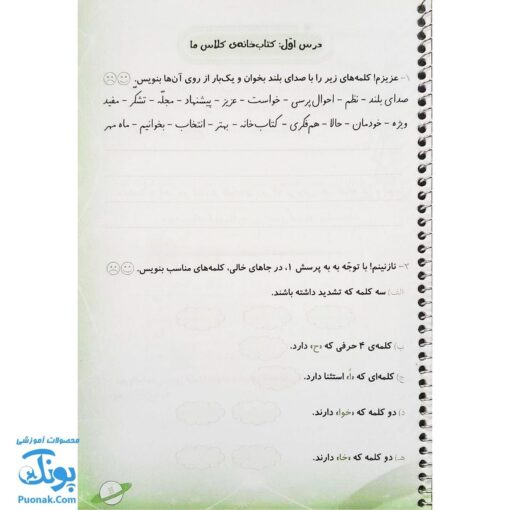 درس اوّل: کتاب‌خانه‌ی کلاس ما
۱- عزیزم! کلمه‌های زیر را با صدای بلند بخوان و یک‌بار از روی آن‌ها بنویس.
صدای بلند - نظم - احوال پرسی - خواست - عزیز - پیشنهاد - مجلّه - تشکّر - مفید
ویژه - خودمان - حالا - هم‌فکری - کتاب‌خانه - بهتر - انتخاب - بخوانیم - ماه مهر
۲- نازنینم! با توجّه به به پرسش ۱، در جاهای خالی، کلمه‌های مناسب بنویس.
الف) سه کلمه که تشدید داشته باشند.
ب) کلمه‌ی ۴ حرفی که «ح» دارد.
ج) کلمه‌ای که «اُ» استثنا دارد.
د) دو کلمه که «خوا» دارند.
هـ) دو کلمه که «خا» دارند.
محصولات آموزشی
پونک
Puonak.Com